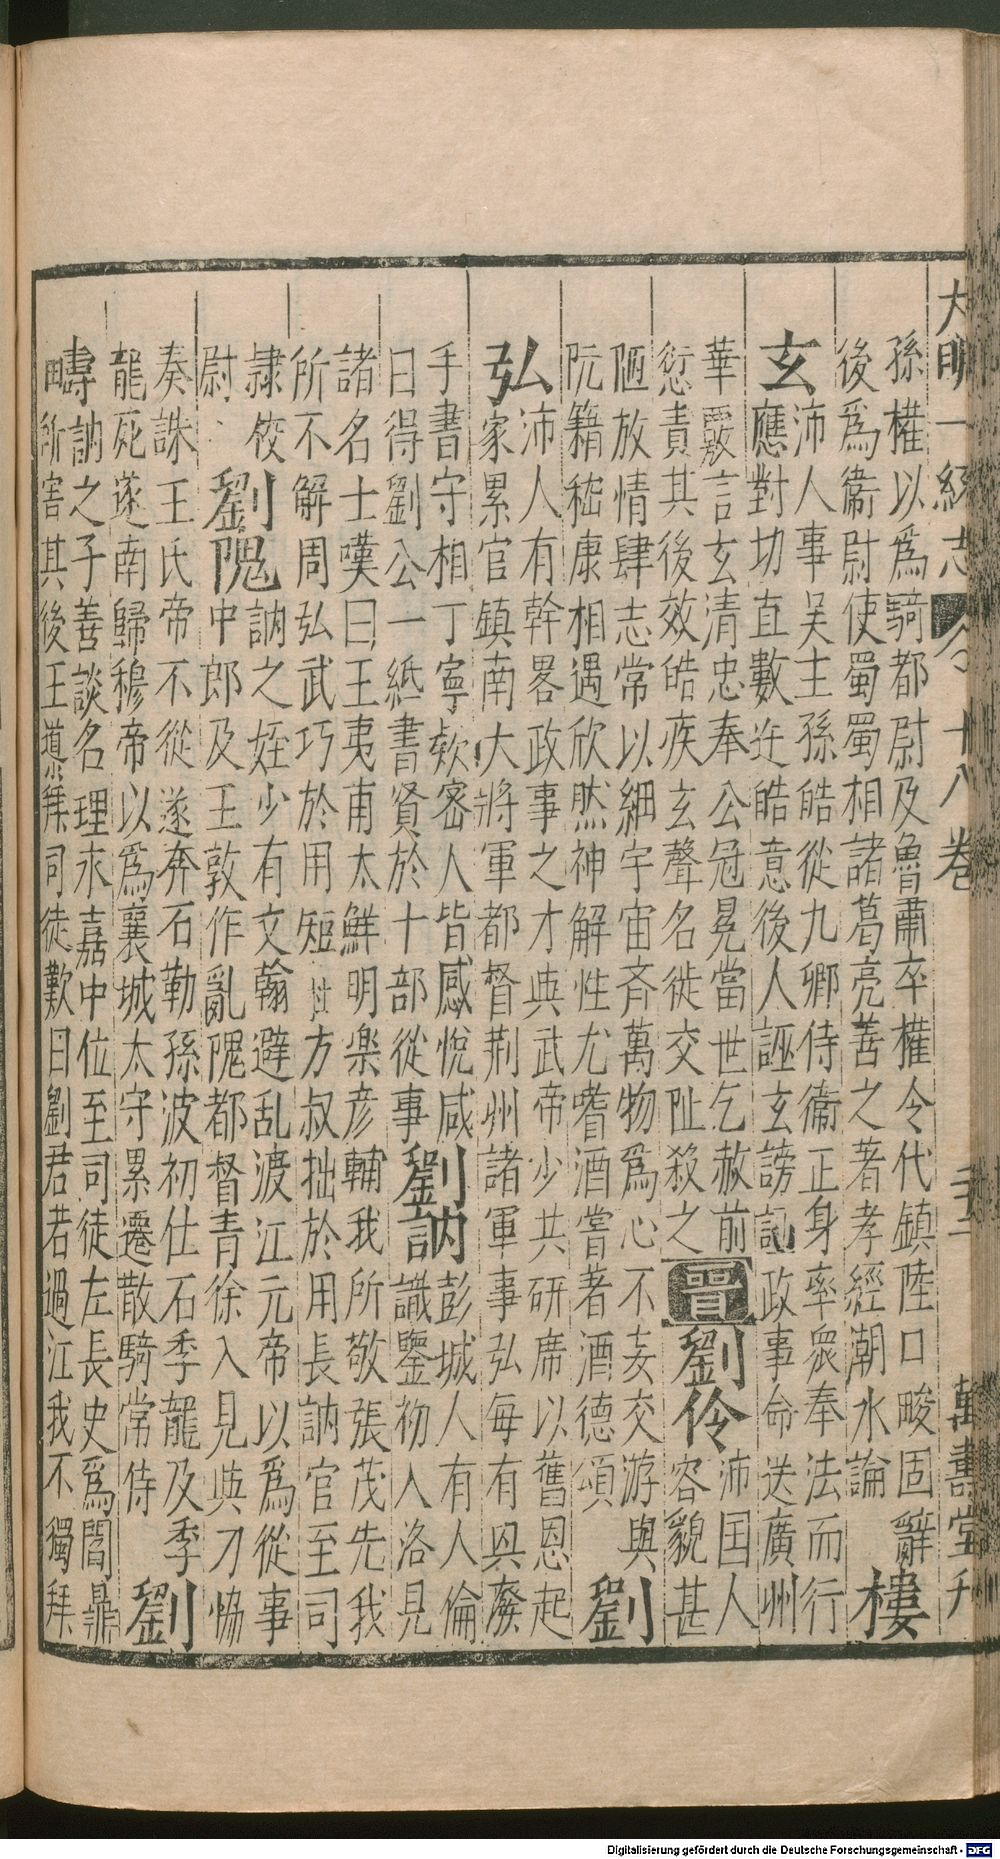 大明一統志 令十八卷 萬壽堂刋
孫權以為騎都尉及魯肅卒權令代鎮陸口畯固辭
後為衞尉使蜀蜀相諸葛亮善之著孝經潮水論
樓
玄
沛人事吴主孫皓從九卿侍衞正身率衆奉法而行
應對切直數迕皓意後人誣玄謗訕政事命送廣州
華覈言玄清忠奉公冠冕當世乞赦前
愆責其後效皓疾玄聲名徙交趾殺之
晉
劉伶
沛国人
容貌甚
陋放情肆志常以細宇宙斉萬物為心不妄交游與
阮籍嵇康相遇欣然神解性尤嗜酒嘗著酒德頌
劉
弘
沛人有幹畧政事之才與武帝少共研席以舊恩起
家累官鎮南大將軍都督荆州諸軍事弘每有興廢
手書守相丁寧欵密人皆感悅咸
曰得劉公一紙書賢於十部從事
劉訥
彭城人有人倫
識鑒初入洛見
諸名士嘆曰王夷甫太鮮明楽彦輔我所敬張茂先我
所不解周弘武巧於用短杜方叔拙於用長訥官至司
隷校
尉
劉隗
訥之姪少有文翰避乱渡江元帝以為從事
中郎及王敦作亂隗都督青徐入見與刀恊
奏誅王氏帝不從遂奔石勒孫波初仕石季龍及季
龍死遂南歸穆帝以為襄城太守累遷散騎常侍
劉
疇
訥之子善談名理永嘉中位至司徒左長史為閻鼎
所害其後王導拜司徒歎曰劉君若過江我不獨拜
Digitalisierung gefördert durch die Deutsche Forschungsgemeinschaft - DFG